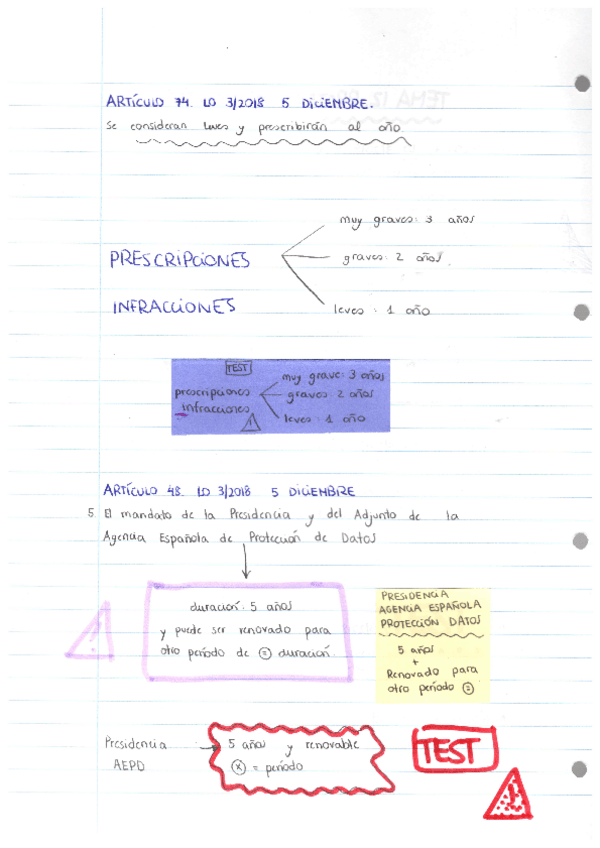 ARTÍCULO 74. LO 3/2018 5 DICIEMBRE.
Se consideran leves y prescribirán al año
muy graves: 3 años
PRESCRIPCIONES
graves: 2 años.
INFRACCIONES
leves: 1 año
TEST
muy grave: 3 años
prescripciones
graves: 2 años
infracciones
leves: 1 año
!
ARTÍCULO 48. LO 3/2018 5 DICIEMBRE
5. El mandato de la Presidencia y del Adjunto de la
Agencia Española de Protección de Datos
duración: 5 años
y puede ser renovado para
otro período de = duración
!
PRESIDENCIA
AGENCIA ESPAÑOLA
PROTECCIÓN DATOS
5 años
+
Renovado para
otro período =
Presidencia
AEPD
5 años y renovable
x = período
TEST
!